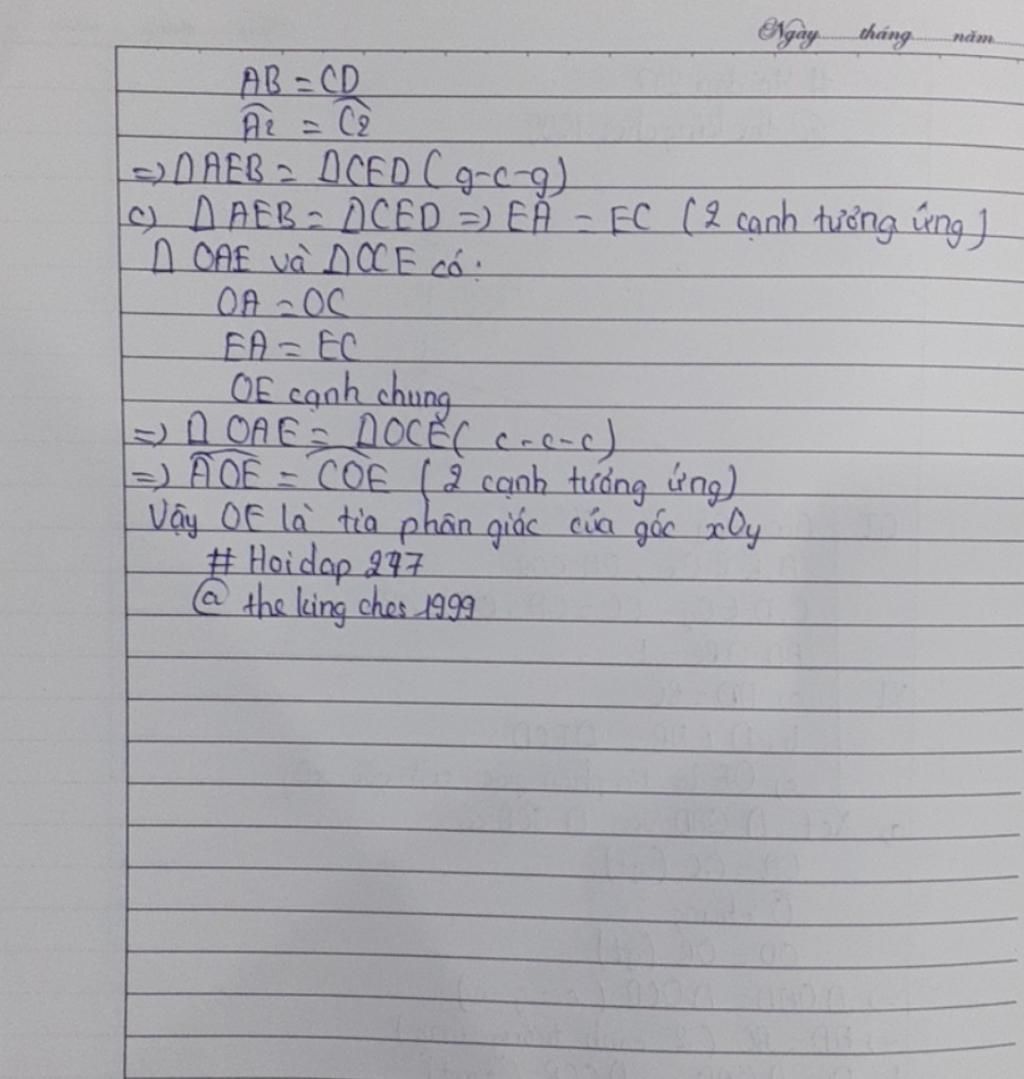 Ngày tháng năm
AB = CD
Â2 = Ĉ2
=> ΔAEB = ΔCED (g-c-g)
c) ΔAEB = ΔCED => EA = EC (2 cạnh tương ứng)
Δ OAE và ΔOCE có:
OA = OC
EA = EC
OE cạnh chung
=> Δ OAE = ΔOCE (c-c-c)
=> \widehat{AOE} = \widehat{COE} (2 cạnh tướng ứng)
Vậy OE là tia phân giác của góc xOy
# Hoidap 247
@ the king ches 1999